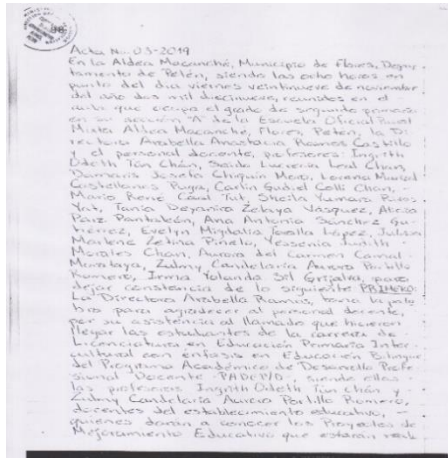 Acta No. 03-2019
En la Aldea Macanché, Municipio de Flores, Depar-
tamento de Petén, siendo las ocho horas en
punto del día viernes veintinueve de noviembre
del año dos mil diecinueve, reunidos en el
aula que ocupa el grado de segundo primaria
en su sección "A" de la Escuela Oficial Rural
Mixta Aldea Macanché, Flores, Petén, la Di-
rectora Arabella Anastacia Ramos Castillo
y el personal docente, profesores: Ingrith
Odeth Tun Chán, Lucrecia Leal Chan,
Damaris Josefa Chiquín Mero, Lorena Maribel
Castellanos Puga, Carlin Gudiel Colli Chan,
Mario René Caal Tut, Sheila Yumara
Tania Deyanira Zetaya Vásquez,
Paiz Pantaleón, Ana Antonia Sánchez Gu-
tiérrez, Evelyn Migdalia López, Julissa
Marlene Zetina Pinelo, Yessenia Judith
Morales Chan, Aurora del Carmen Camal
Zulmy Candelaria Aurora Portillo
Romero, Irma Yolanda Sil Grijalva, para
dejar constancia de lo siguiente PRIMERO:
La Directora Arabella Ramos, toma la pala-
bra para agradecer al personal docente,
por su asistencia al llamado que hicieron
llegar las estudiantes de la carrera de
Licenciatura en Educación Primaria Inter-
cultural con énfasis en Educación Bilingüe
del Programa Académico de Desarrollo Profe-
sional Docente PADEP/D, siendo ellas
las profesoras Ingrith Odeth Tun Chán y
Zulmy Candelaria Aurora Portillo Romero,
docentes del establecimiento educativo, -
quienes darán a conocer los Proyectos de
Mejoramiento Educativo que estarán reali